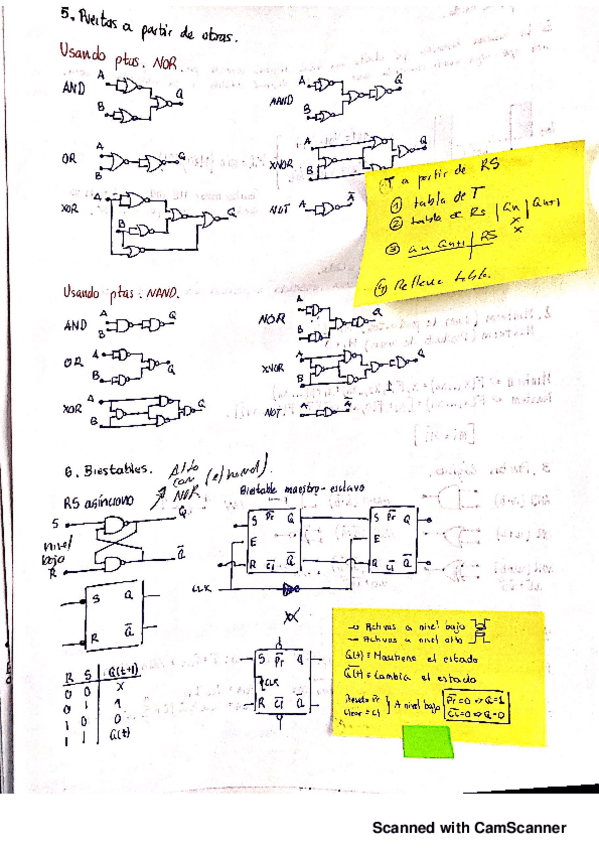 5. Puertas a partir de otras.
Usando ptas. NOR.
AND A B Q
NAND A B Q
OR A B Q
XNOR A B Q
XOR A B Q
NOT A A̅
T a partir de RS
① tabla de T
② tabla de RS | Qn | Qn+1
x
x
③ Qn Qn+1 | RS
④ Rellena tabla.
Usando ptas. NAND.
AND A B Q
NOR A B Q
OR A B Q
XNOR A B Q
XOR A B Q
NOT A A̅
6. Biestables.
Alto con NOR (el normal).
RS asíncrono
Biestable maestro-esclavo
S Q
nivel bajo
R Q̅
S Pr̅ Q
E
R Cl̅ Q̅
S Pr̅ Q
E
R Cl̅ Q̅
CLK
S Q
R Q̅
S Pr̅ Q
CLK
R Cl̅ Q̅
R S Q(t+1)
0 0 X
0 1 1
1 0 0
1 1 Q(t)
-o Activas a nivel bajo
- Activas a nivel alto
Q(t) = Mantiene el estado
Q̅(t) = Cambia el estado
Preset = Pr
Clear = Cl
} A nivel bajo
Pr̅=0 => Q=1
Cl̅=0 => Q=0
Scanned with CamScanner